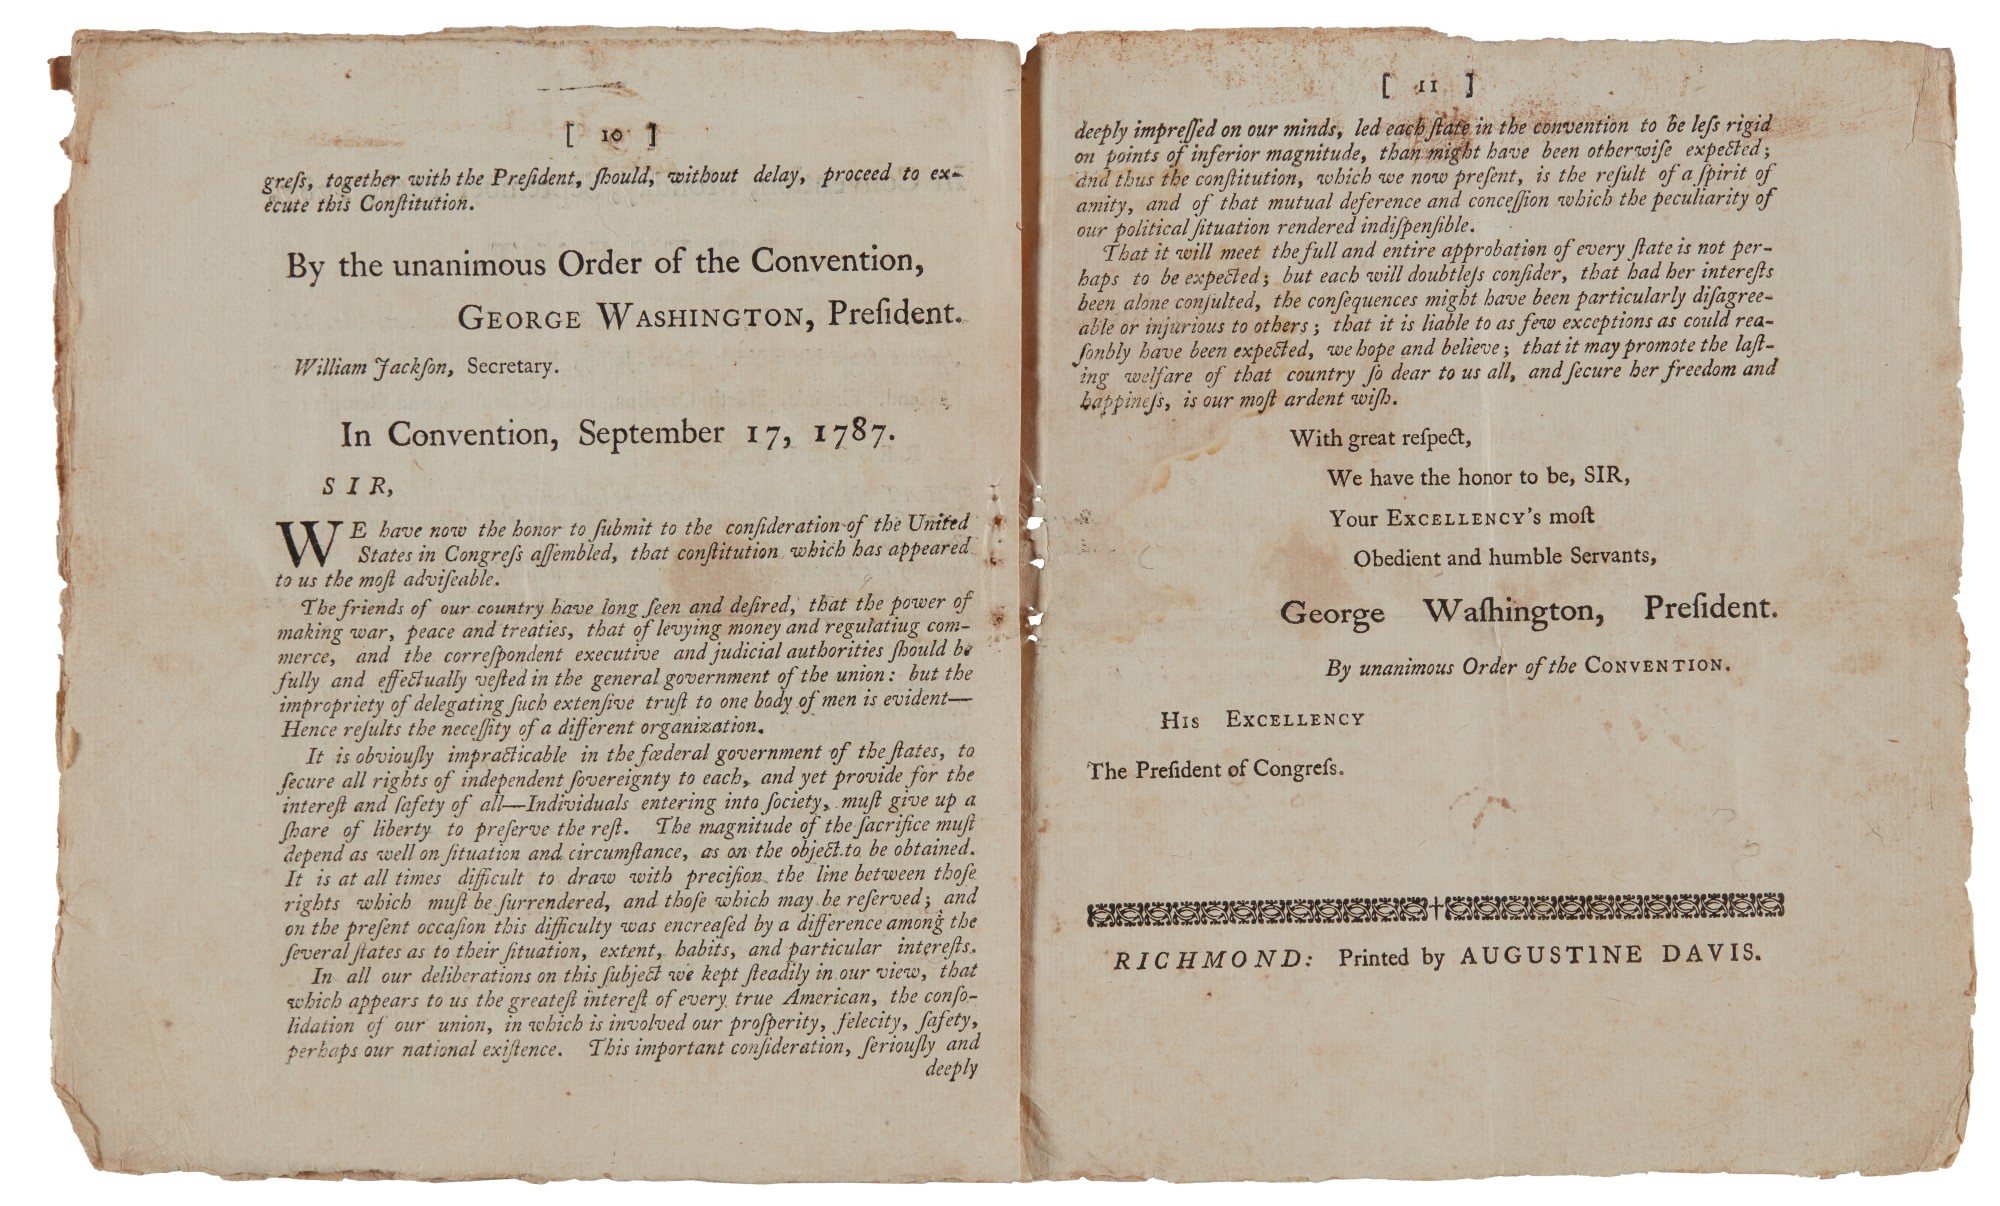 [ 10 ]
greſs, together with the Preſident, ſhould, without delay, proceed to ex-
ecute this Conſtitution.
By the unanimous Order of the Convention,
GEORGE WASHINGTON, Preſident.
William Jackſon, Secretary.
In Convention, September 17, 1787.
S I R,
WE have now the honor to ſubmit to the conſideration of the United
States in Congreſs aſſembled, that conſtitution which has appeared
to us the moſt adviſeable.
The friends of our country have long ſeen and deſired, that the power of
making war, peace and treaties, that of levying money and regulatiug com-
merce, and the correſpondent executive and judicial authorities ſhould be
fully and effectually veſted in the general government of the union: but the
impropriety of delegating ſuch extenſive truſt to one body of men is evident—
Hence reſults the neceſſity of a different organization.
It is obviouſly impracticable in the fœderal government of the ſtates, to
ſecure all rights of independent ſovereignty to each, and yet provide for the
intereſt and ſafety of all—Individuals entering into ſociety, muſt give up a
ſhare of liberty to preſerve the reſt. The magnitude of the ſacrifice muſt
depend as well on ſituation and circumſtance, as on the object to be obtained.
It is at all times difficult to draw with preciſion the line between thoſe
rights which muſt be ſurrendered, and thoſe which may be reſerved; and
on the preſent occaſion this difficulty was encreaſed by a difference among the
ſeveral ſtates as to their ſituation, extent, habits, and particular intereſts.
In all our deliberations on this ſubject we kept ſteadily in our view, that
which appears to us the greateſt intereſt of every true American, the conſo-
lidation of our union, in which is involved our proſperity, felecity, ſafety,
perhaps our national exiſtence. This important conſideration, ſeriouſly and
deeply
[ 11 ]
deeply impreſſed on our minds, led each ſtate in the convention to be leſs rigid
on points of inferior magnitude, than might have been otherwiſe expected;
and thus the conſtitution, which we now preſent, is the reſult of a ſpirit of
amity, and of that mutual deference and conceſſion which the peculiarity of
our political ſituation rendered indiſpenſible.
That it will meet the full and entire approbation of every ſtate is not per-
haps to be expected; but each will doubtleſs conſider, that had her intereſts
been alone conſulted, the conſequences might have been particularly diſagree-
able or injurious to others; that it is liable to as few exceptions as could rea-
ſonbly have been expected, we hope and believe; that it may promote the laſt-
ing welfare of that country ſo dear to us all, and ſecure her freedom and
happineſs, is our moſt ardent wiſh.
With great reſpect,
We have the honor to be, SIR,
Your EXCELLENCY's moſt
Obedient and humble Servants,
George Waſhington, Preſident.
By unanimous Order of the CONVENTION.
HIS EXCELLENCY
The Preſident of Congreſs.
RICHMOND: Printed by AUGUSTINE DAVIS.